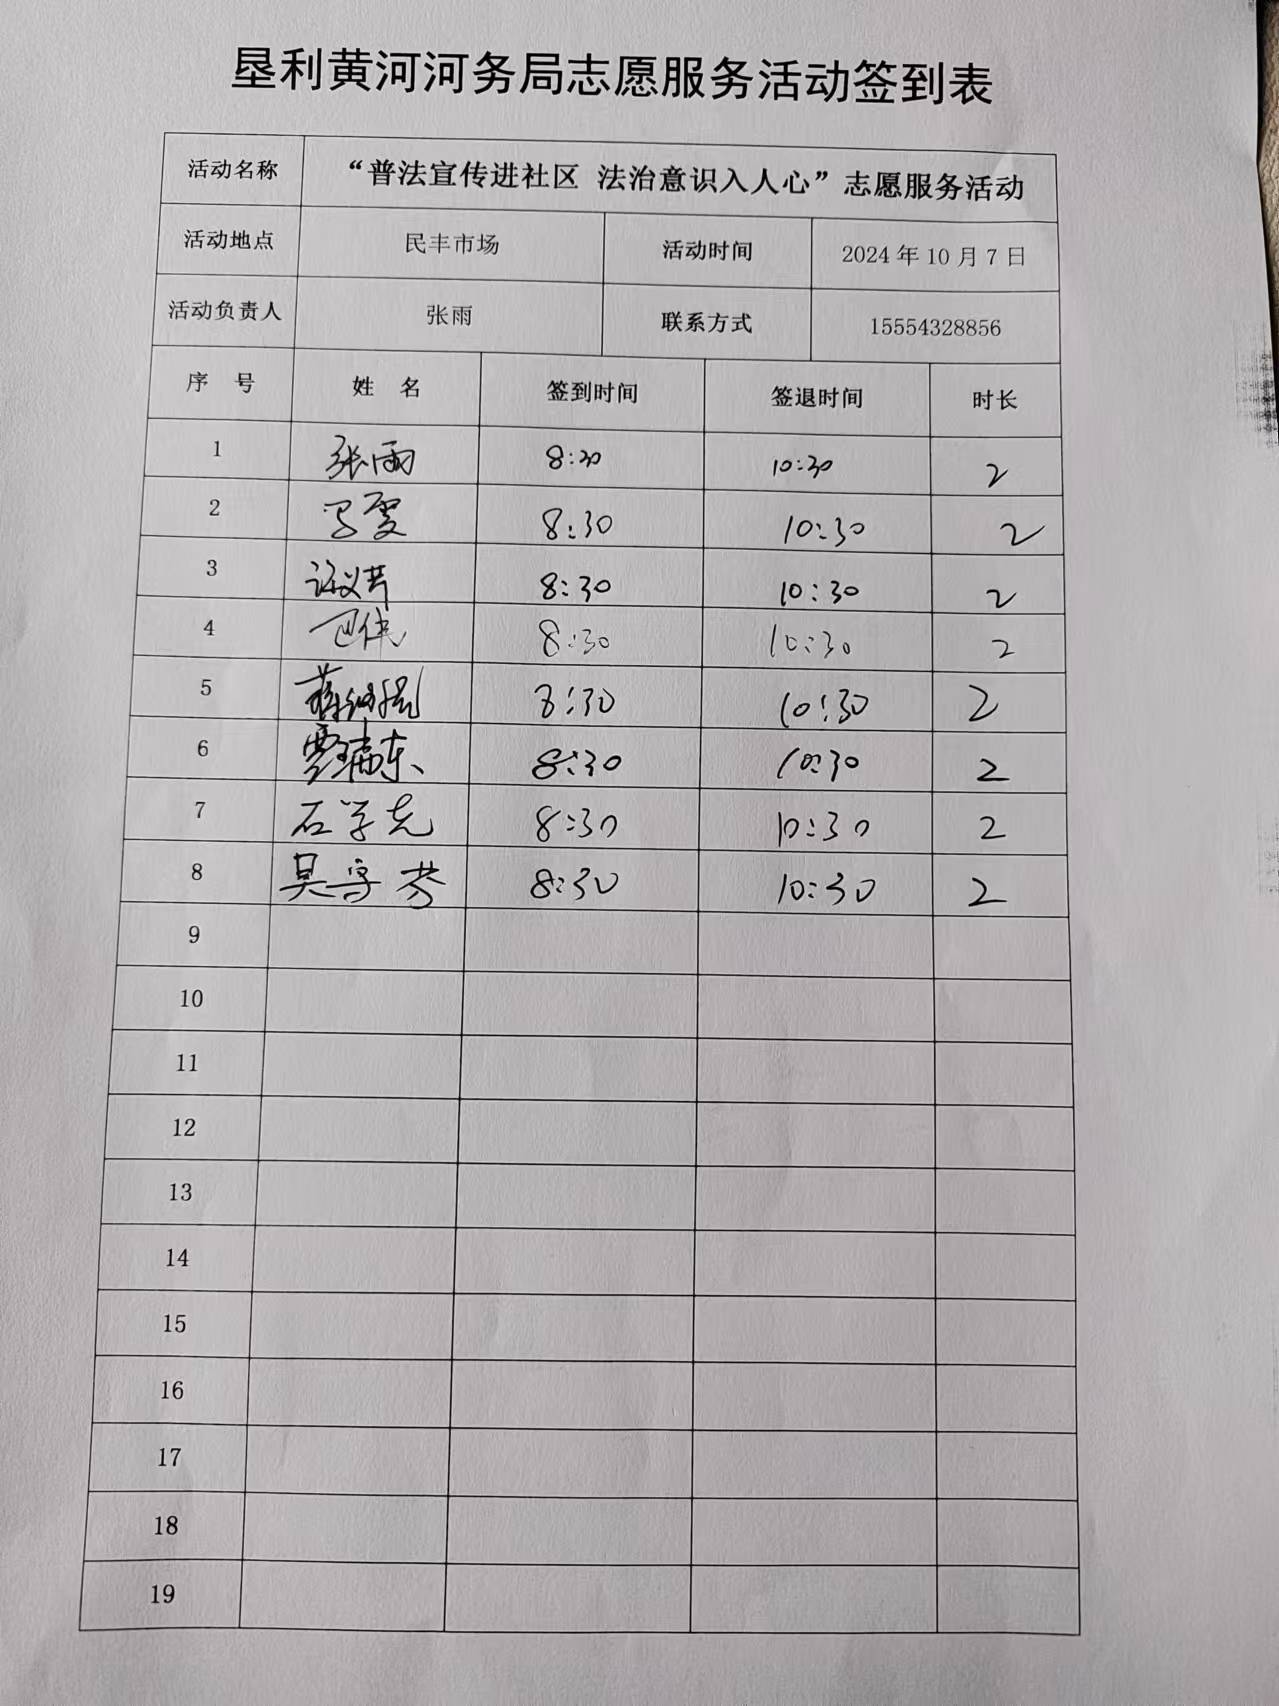 垦利黄河河务局志愿服务活动签到表
活动名称 “普法宣传进社区 法治意识入人心”志愿服务活动
活动地点 民丰市场 活动时间 2024年10月7日
活动负责人 张雨 联系方式 15554328856
序 号 姓 名 签到时间 签退时间 时长
1 张雨 8:30 10:30 2
2 8:30 10:30 2
3 8:30 10:30 2
4 巴伟 8:30 10:30 2
5 8:30 10:30 2
6 贾瑞东 8:30 10:30 2
7 石学先 8:30 10:30 2
8 吴守芬 8:30 10:30 2
9
10
11
12
13
14
15
16
17
18
19